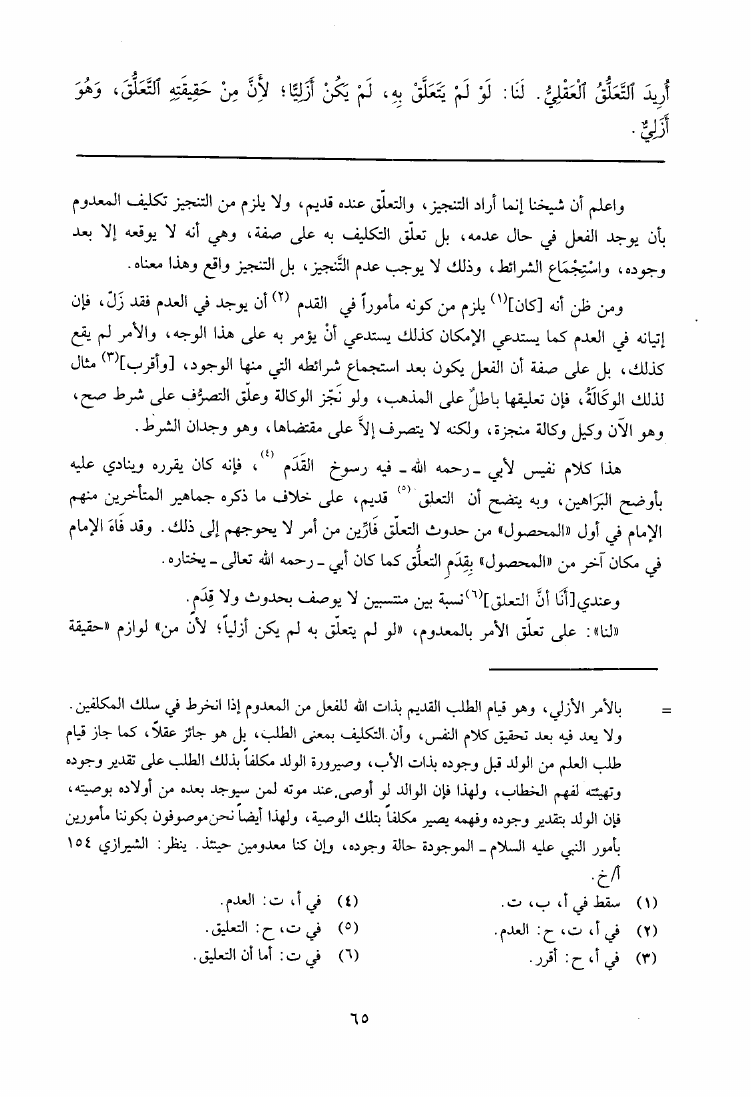 أُرِيدَ ٱلتَّعَلُّقُ ٱلْعَقْلِيُّ. لَنَا: لَوْ لَمْ يَتَعَلَّقْ بِهِ، لَمْ يَكُنْ أَزَلِيًّا؛ لأَنَّ مِنْ حَقِيقَتِهِ ٱلتَّعَلُّقَ، وَهُوَ
أَزَلِيٌّ.
واعلم أن شيخنا إنما أراد التنجيز، والتعلّق عنده قديم، ولا يلزم من التنجيز تكليف المعدوم
بأن يوجد الفعل في حال عدمه، بل تعلّق التكليف به على صفة، وهي أنه لا يوقعه إلا بعد
وجوده، واسْتِجْمَاع الشرائط، وذلك لا يوجب عدم التَّنجيز، بل التنجيز واقع وهذا معناه.
ومن ظن أنه [كان](١) يلزم من كونه مأموراً في القدم (٢) أن يوجد في العدم فقد زَلّ، فإن
إتيانه في العدم كما يستدعي الإمكان كذلك يستدعي أنْ يؤمر به على هذا الوجه، والأمر لم يقع
كذلك، بل على صفة أن الفعل يكون بعد استجماع شرائطه التي منها الوجود، [وأقرب](٣) مثال
لذلك الوكَالَةُ، فإن تعليقها باطلٌ على المذهب، ولو نَجّز الوكالة وعلّق التصرُّف على شرط صح،
وهو الآن وكيل وكالة منجزة، ولكنه لا يتصرف إلاَّ على مقتضاها، وهو وجدان الشرط.
هذا كلام نفيس لأبي ـ رحمه الله ـ فيه رسوخ القَدَم (٤)، فإنه كان يقرره وينادي عليه
بأوضح البَرَاهين، وبه يتضح أن التعلق (٥) قديم، على خلاف ما ذكره جماهير المتأخرين منهم
الإمام في أول «المحصول» من حدوث التعلّق فَارِّين من أمر لا يحوجهم إلى ذلك. وقد فَاهَ الإمام
في مكان آخر من «المحصول» بِقِدَمِ التعلُّق كما كان أبي ـ رحمه الله تعالى ـ يختاره.
وعندي [أَنَا أنَّ التعلق](٦) نسبة بين منتسبين لا يوصف بحدوث ولا قِدَم.
«لنا»: على تعلّق الأمر بالمعدوم، «لو لم يتعلّق به لم يكن أزلياً؛ لأن من» لوازم «حقيقة
= بالأمر الأزلي، وهو قيام الطلب القديم بذات الله للفعل من المعدوم إذا انخرط في سلك المكلفين.
ولا يعد فيه بعد تحقيق كلام النفس، وأن التكليف بمعنى الطلب، بل هو جائز عقلاً، كما جاز قيام
طلب العلم من الولد قبل وجوده بذات الأب، وصيرورة الولد مكلفاً بذلك الطلب على تقدير وجوده
وتهيئته لفهم الخطاب، ولهذا فإن الوالد لو أوصى عند موته لمن سيوجد بعده من أولاده بوصيته،
فإن الولد بتقدير وجوده وفهمه يصير مكلفاً بتلك الوصية، ولهذا أيضاً نحن موصوفون بكوننا مأمورين
بأمور النبي عليه السلام ـ الموجودة حالة وجوده، وإن كنا معدومين حينئذ. ينظر: الشيرازي ١٥٤
أ/خ.
(١) سقط في أ، ب، ت.
(٢) في أ، ت، ح: العدم.
(٣) في أ، ح: أقرر.
(٤) في أ، ت: العدم.
(٥) في ت، ح: التعليق.
(٦) في ت: أما أن التعليق.
٦٥